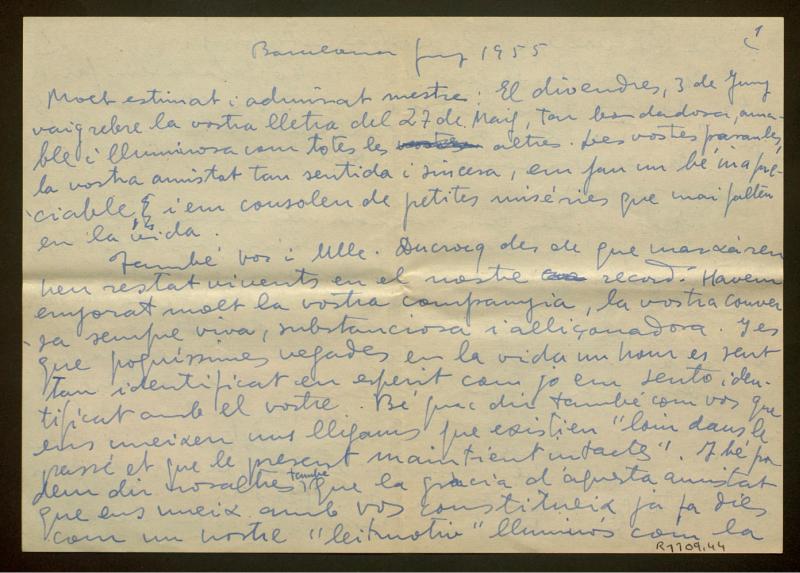 1
Barcelona juny 1955
Molt estimat i admirat mestre: El divendres, 3 de Juny
vaig rebre la vostra lletra del 27 de Maig, tan bondadosa, ama-
ble i lluminosa com totes les altres. Les vostes paraules,
la vostra amistat tan sentida i sincera, em fan un bé inapre-
ciable i em consolen de petites misèries que mai falten
en la vida.
També vos i Mlle. Ducrocq des de que marxàren
heu restat vivents en el nostre record. Havem
enyorat molt la vostra companyia, la vostra conver
sa sempre viva, substanciosa i alliçonadora. I es
que poquissimes vegades en la vida un hom es sent
tan identificat en esperit com jo em sento iden-
tificat amb el vostre. Bé puc dir també com vos que
ens uneixen uns lligams que existien "loin dans le
passé et que le présent maintient intacts". I bé po
dem dir nosaltres també, que la gràcia d'aquesta amistat
que ens uneix amb vos constitueix ja fa dies
com un nostre "leitmotiv" lluminós com la
R1109.44